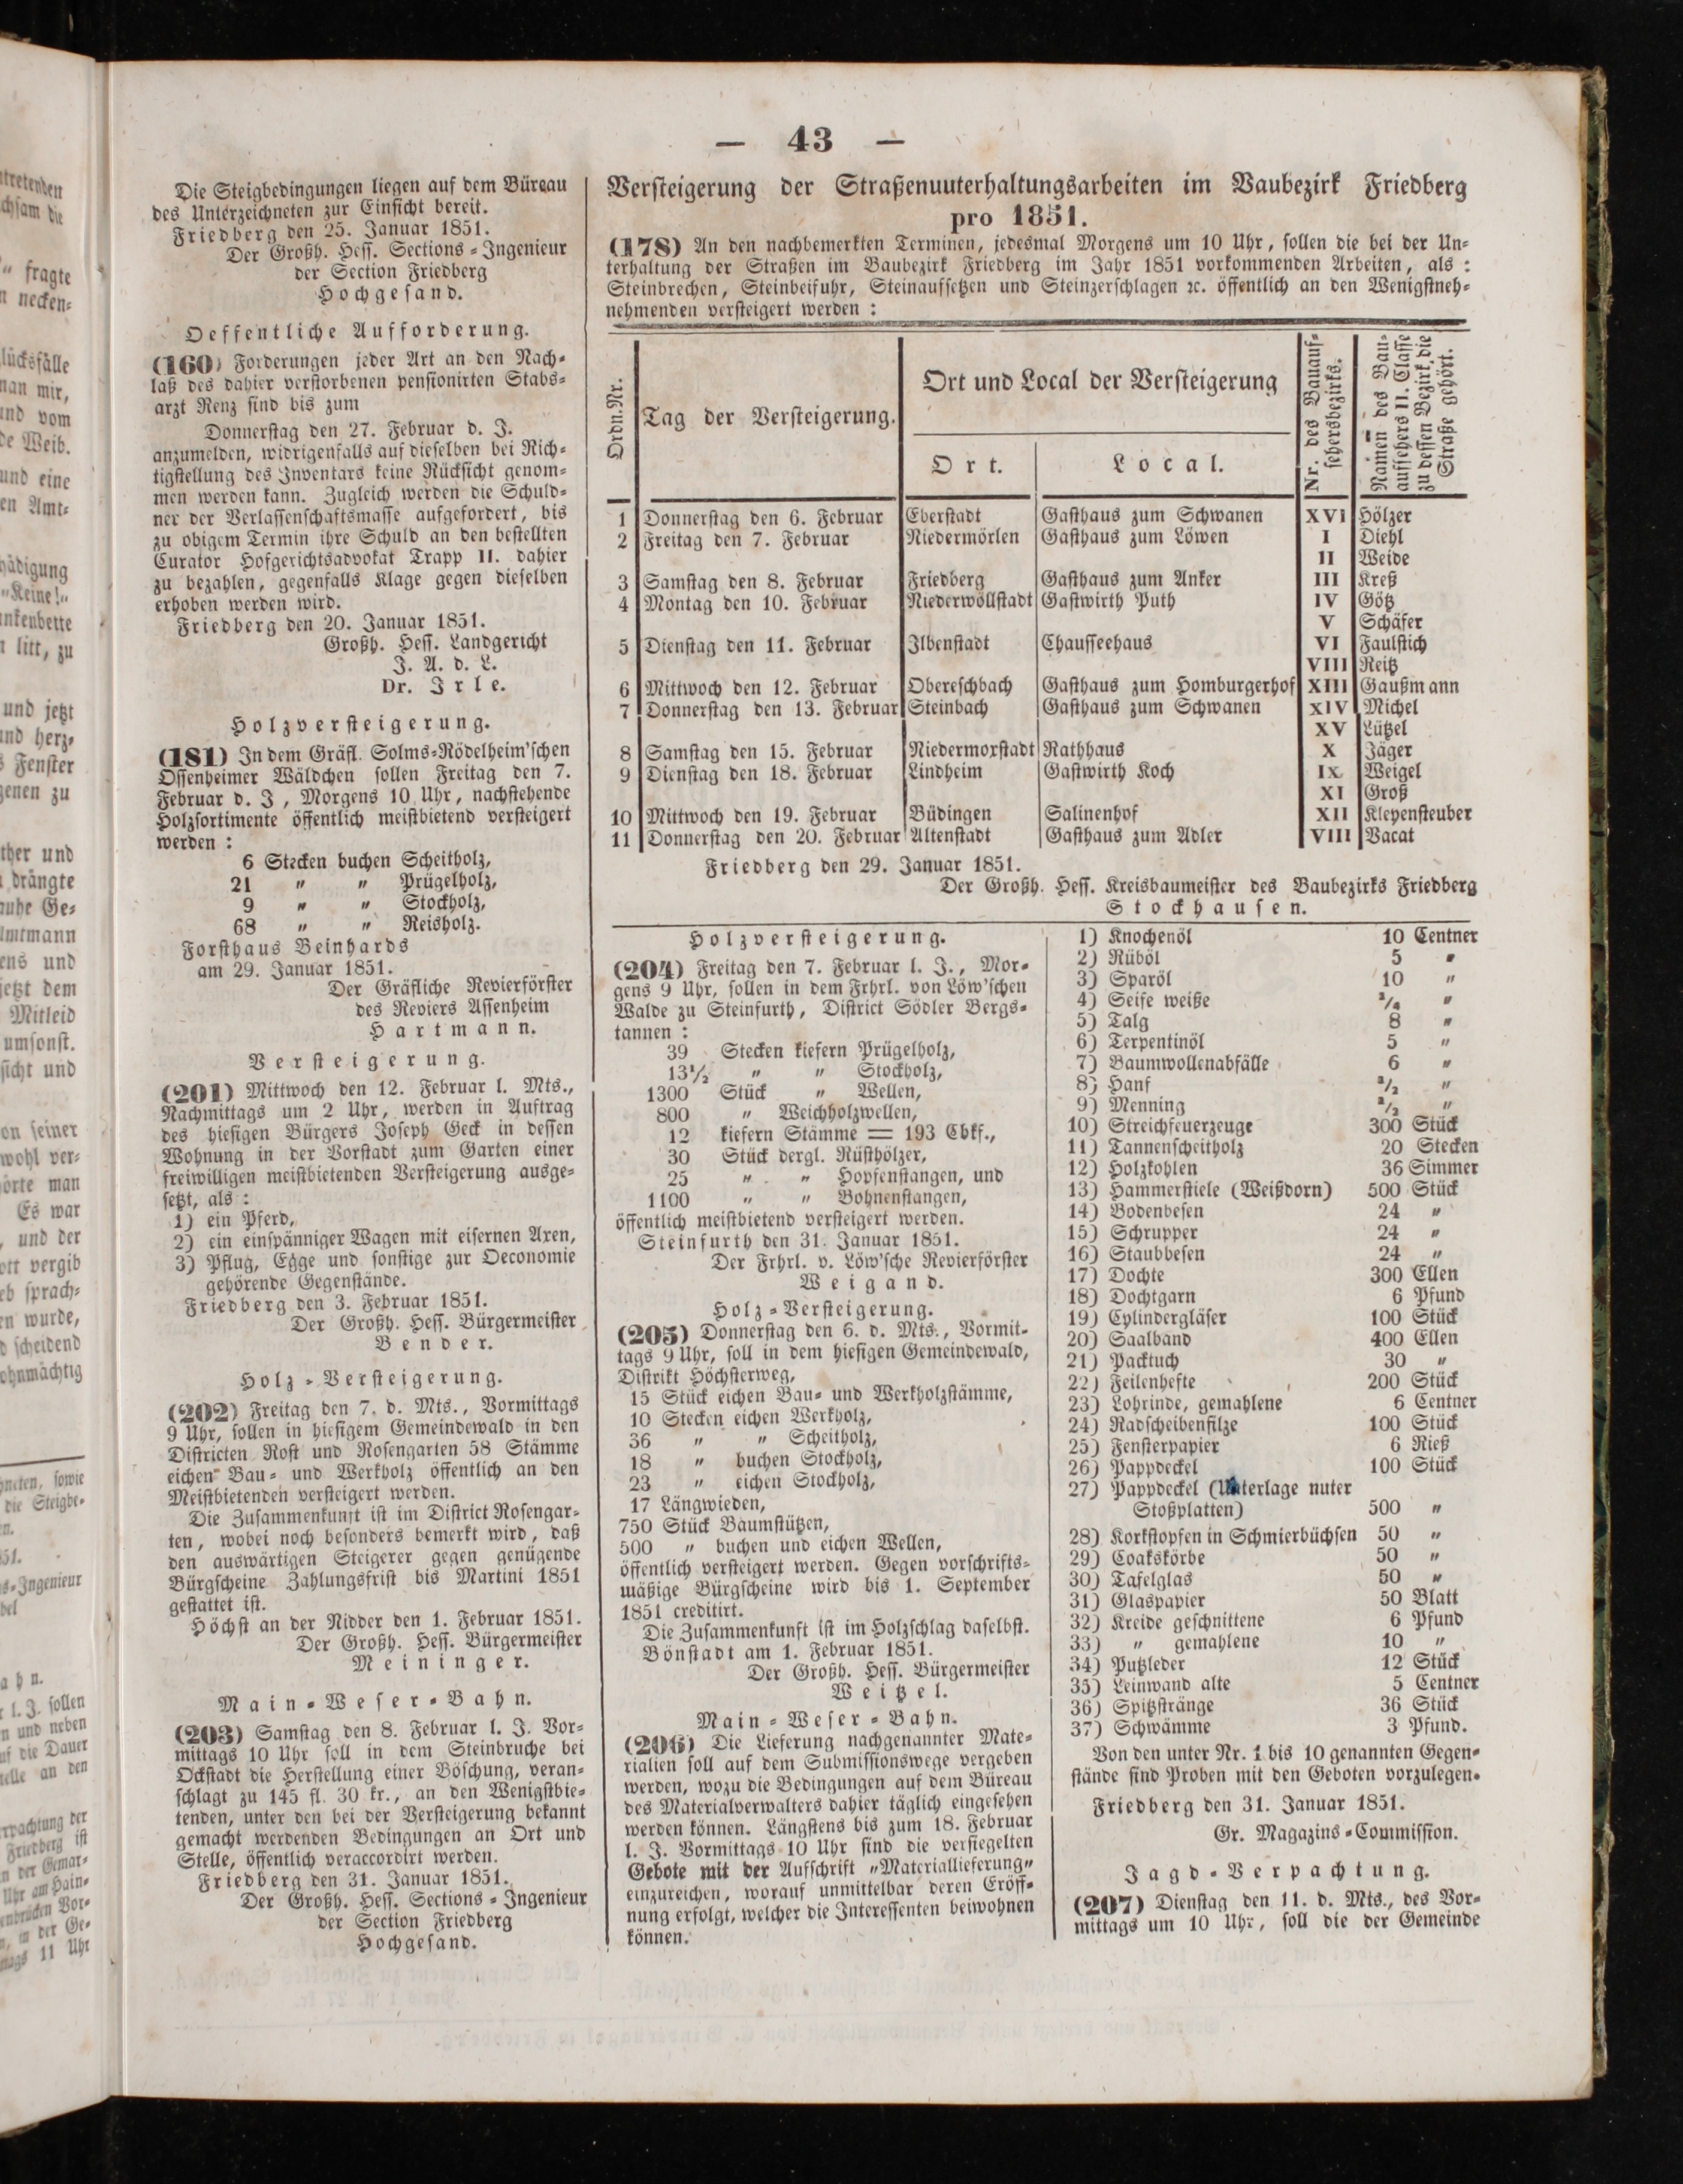 — 43 —
Die Steigbedingungen liegen auf dem Büreau
des Unterzeichneten zur Einsicht bereit.
Friedberg den 25. Januar 1851.
Der Großh. Hess. Sections-Ingenieur
der Section Friedberg
Hochgesand.
Oeffentliche Aufforderung.
(160) Forderungen jeder Art an den Nach-
laß des dahier verstorbenen pensionirten Stabs-
arzt Renz sind bis zum
Donnerstag den 27. Februar d. J.
anzumelden, widrigenfalls auf dieselben bei Rich-
tigstellung des Inventars keine Rücksicht genom-
men werden kann. Zugleich werden die Schuld-
ner der Verlassenschaftsmasse aufgefordert, bis
zu obigem Termin ihre Schuld an den bestellten
Curator Hofgerichtsadvokat Trapp II. dahier
zu bezahlen, gegenfalls Klage gegen dieselben
erhoben werden wird.
Friedberg den 20. Januar 1851.
Großh. Hess. Landgericht
J. A. d. L.
Dr. Irle.
Holzversteigerung.
(181) In dem Gräfl. Solms-Rödelheim'schen
Ossenheimer Wäldchen sollen Freitag den 7.
Februar d. J , Morgens 10 Uhr, nachstehende
Holzsortimente öffentlich meistbietend versteigert
werden :
6 Stecken buchen Scheitholz,
21 „ „ Prügelholz,
9 „ „ Stockholz,
68 „ „ Reisholz.
Forsthaus Beinhards
am 29. Januar 1851.
Der Gräfliche Revierförster
des Reviers Assenheim
Hartmann.
Versteigerung.
(201) Mittwoch den 12. Februar l. Mts.,
Nachmittags um 2 Uhr, werden in Auftrag
des hiesigen Bürgers Joseph Geck in dessen
Wohnung in der Vorstadt zum Garten einer
freiwilligen meistbietenden Versteigerung ausge-
setzt, als :
1) ein Pferd,
2) ein einspänniger Wagen mit eisernen Axen,
3) Pflug, Egge und sonstige zur Oeconomie
gehörende Gegenstände.
Friedberg den 3. Februar 1851.
Der Großh. Hess. Bürgermeister
Bender.
Holz-Versteigerung.
(202) Freitag den 7. d. Mts., Vormittags
9 Uhr, sollen in hiesigem Gemeindewald in den
Districten Rost und Rosengarten 58 Stämme
eichen Bau- und Werkholz öffentlich an den
Meistbietenden versteigert werden.
Die Zusammenkunft ist im District Rosengar-
ten, wobei noch besonders bemerkt wird, daß
den auswärtigen Steigerer gegen genügende
Bürgscheine Zahlungsfrist bis Martini 1851
gestattet ist.
Höchst an der Nidder den 1. Februar 1851.
Der Großh. Hess. Bürgermeister
Meininger.
Main-Weser-Bahn.
(203) Samstag den 8. Februar l. J. Vor-
mittags 10 Uhr soll in dem Steinbruche bei
Ockstadt die Herstellung einer Böschung, veran-
schlagt zu 145 fl. 30 kr., an den Wenigstbie-
tenden, unter den bei der Versteigerung bekannt
gemacht werdenden Bedingungen an Ort und
Stelle, öffentlich veraccordirt werden.
Friedberg den 31. Januar 1851.
Der Großh. Hess. Sections-Ingenieur
der Section Friedberg
Hochgesand.
Versteigerung der Straßenuuterhaltungsarbeiten im Baubezirk Friedberg
pro 1851.
(178) An den nachbemerkten Terminen, jedesmal Morgens um 10 Uhr, sollen die bei der Un-
terhaltung der Straßen im Baubezirk Friedberg im Jahr 1851 vorkommenden Arbeiten, als :
Steinbrechen, Steinbeifuhr, Steinaufsetzen und Steinzerschlagen ꝛc. öffentlich an den Wenigstneh-
nehmenden versteigert werden :
Ordn.Nr.
Tag der Versteigerung.
Ort und Local der Versteigerung
Ort.
Local.
Nr. des Bauauf-
sehersbezirks.
Namen des Bau-
aufsehers II. Classe
zu dessen Bezirk, die
Straße gehört.
1 Donnerstag den 6. Februar Eberstadt Gasthaus zum Schwanen XVI Hölzer
2 Freitag den 7. Februar Niedermörlen Gasthaus zum Löwen I Diehl
II Weide
3 Samstag den 8. Februar Friedberg Gasthaus zum Anker III Kreß
4 Montag den 10. Februar Niederwöllstadt Gastwirth Puth IV Götz
V Schäfer
5 Dienstag den 11. Februar Ilbenstadt Chausseehaus VI Faulstich
VIII Reitz
6 Mittwoch den 12. Februar Obereschbach Gasthaus zum Homburgerhof XIII Gaußmann
7 Donnerstag den 13. Februar Steinbach Gasthaus zum Schwanen XIV Michel
XV Lützel
8 Samstag den 15. Februar Niedermorstadt Rathhaus X Jäger
9 Dienstag den 18. Februar Lindheim Gastwirth Koch IX Weigel
XI Groß
10 Mittwoch den 19. Februar Büdingen Salinenhof XII Klepensteuber
11 Donnerstag den 20. Februar Altenstadt Gasthaus zum Adler VIII Vacat
Friedberg den 29. Januar 1851.
Der Großh. Hess. Kreisbaumeister des Baubezirks Friedberg
Stockhausen.
Holzversteigerung.
(204) Freitag den 7. Februar l. J., Mor-
gens 9 Uhr, sollen in dem Frhrl. von Löw'schen
Walde zu Steinfurth, District Södler Bergs-
tannen :
39 Stecken kiefern Prügelholz,
13½ „ „ Stockholz,
1300 Stück „ Wellen,
800 „ Weichholzwellen,
12 kiefern Stämme = 193 Cbkf.,
30 Stück dergl. Rüsthölzer,
25 „ „ Hopfenstangen, und
1100 „ „ Bohnenstangen,
öffentlich meistbietend versteigert werden.
Steinfurth den 31. Januar 1851.
Der Frhrl. v. Löw'sche Revierförster
Weigand.
Holz-Versteigerung.
(205) Donnerstag den 6. d. Mts., Vormit-
tags 9 Uhr, soll in dem hiesigen Gemeindewald,
Distrikt Höchsterweg,
15 Stück eichen Bau- und Werkholzstämme,
10 Stecken eichen Werkholz,
36 „ „ Scheitholz,
18 „ buchen Stockholz,
23 „ eichen Stockholz,
17 Längwieden,
750 Stück Baumstützen,
500 „ buchen und eichen Wellen,
öffentlich versteigert werden. Gegen vorschrifts-
mäßige Bürgscheine wird bis 1. September
1851 creditirt.
Die Zusammenkunft ist im Holzschlag daselbst.
Bönstadt am 1. Februar 1851.
Der Großh. Hess. Bürgermeister
Weitzel.
Main-Weser-Bahn.
(206) Die Lieferung nachgenannter Mate-
rialien soll auf dem Submissionswege vergeben
werden, wozu die Bedingungen auf dem Büreau
des Materialverwalters dahier täglich eingesehen
werden können. Längstens bis zum 18. Februar
l. J. Vormittags 10 Uhr sind die versiegelten
Gebote mit der Aufschrift „Materiallieferung"
einzureichen, worauf unmittelbar deren Eröff-
nung erfolgt, welcher die Interessenten beiwohnen
können.
1) Knochenöl 10 Centner
2) Rüböl 5 „
3) Sparöl 10 „
4) Seife weiße „
5) Talg 8 „
6) Terpentinöl 5 „
7) Baumwollenabfälle 6 „
8) Hanf ½ „
9) Menning ½ „
10) Streichfeuerzeuge 300 Stück
11) Tannenscheitholz 20 Stecken
12) Holzkohlen 36 Simmer
13) Hammerstiele (Weißdorn) 500 Stück
14) Bodenbesen 24 „
15) Schrupper 24 „
16) Staubbesen 24 „
17) Dochte 300 Ellen
18) Dochtgarn 6 Pfund
19) Cylindergläser 100 Stück
20) Saalband 400 Ellen
21) Packtuch 30 „
22) Feilenhefte 200 Stück
23) Lohrinde, gemahlene 6 Centner
24) Radscheibenfilze 100 Stück
25) Fensterpapier 6 Rieß
26) Pappdeckel 100 Stück
27) Pappdeckel (Unterlage nuter
Stoßplatten) 500 „
28) Korkstopfen in Schmierbüchsen 50 „
29) Coakskörbe 50 „
30) Tafelglas 50 „
31) Glaspapier 50 Blatt
32) Kreide geschnittene 6 Pfund
33) „ gemahlene 10 „
34) Putzleder 12 Stück
35) Leinwand alte 5 Centner
36) Spitzstränge 36 Stück
37) Schwämme 3 Pfund.
Von den unter Nr. 1 bis 10 genannten Gegen-
stände sind Proben mit den Geboten vorzulegen.
Friedberg den 31. Januar 1851.
Gr. Magazins-Commission.
Jagd-Verpachtung.
(207) Dienstag den 11. d. Mts., des Vor-
mittags um 10 Uhr, soll die der Gemeinde